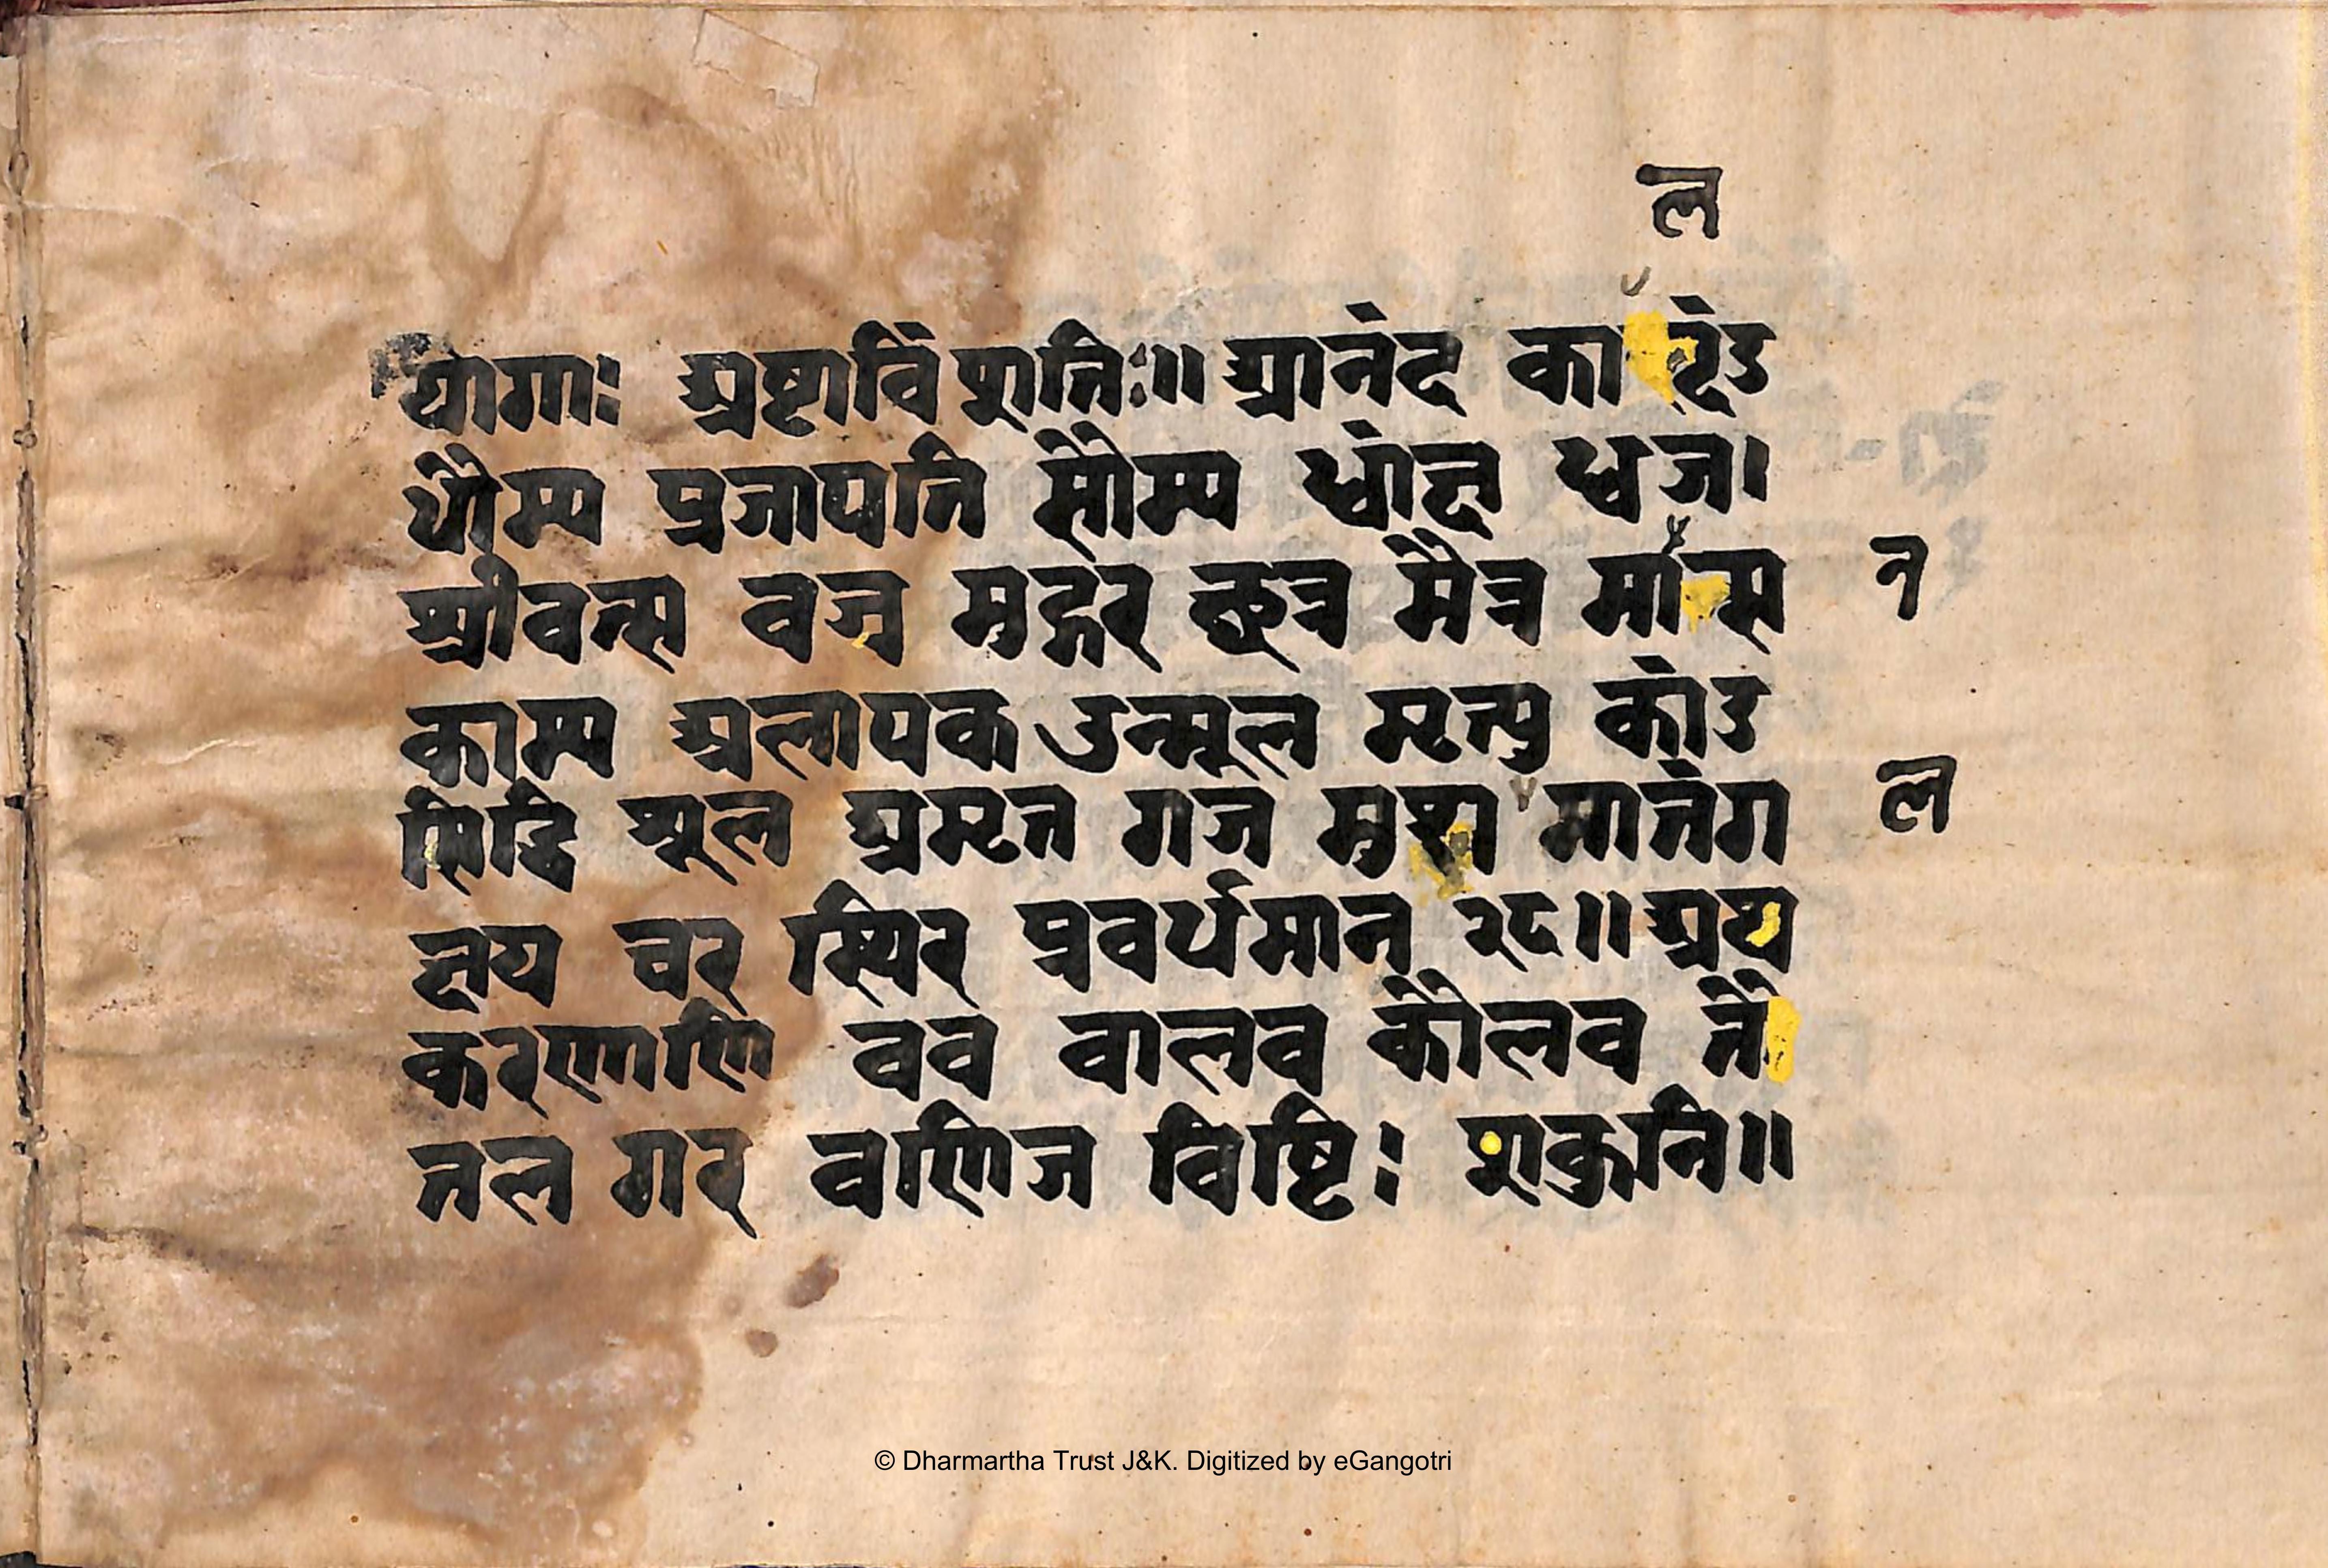 ल
योगाः अष्टाविंशतिः॥ आनंद का दंड
धौम्य प्रजापति सौम्य ध्वांक्ष ध्वज।
श्रीवत्स वज्र मुद्गर छत्र मैत्र मांनस
न
काम्य अलापक उन्मूल मृत्यु कांड
सिद्धि शूल अमृत गज मुशा मातंग
ल
क्षय चर स्थिर प्रवर्धमान २८॥ अथ
करणाणि वव वालव कौलव तै
तल गर वणिज विष्टिः शकुनि॥
© Dharmartha Trust J&K. Digitized by eGangotri